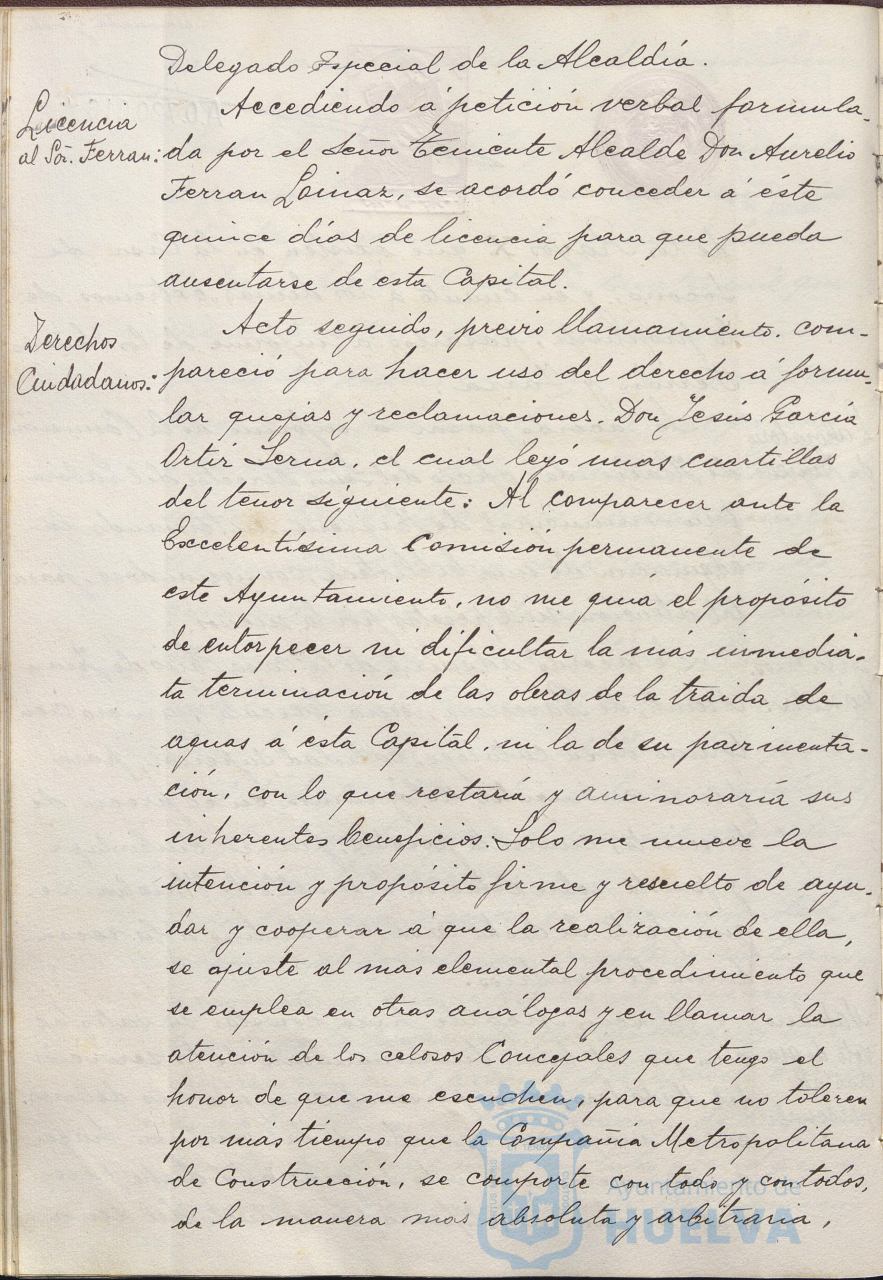 Delegado Especial de la Alcaldía.
Licencia
al Sór. Ferran:
Accediendo á petición verbal formula-
da por el Señor Teniente Alcalde Don Aurelio
Ferran Loinaz, se acordó conceder á éste
quince días de licencia para que pueda
ausentarse de esta Capital.
Derechos
Ciudadanos:
Acto seguido, previo llamamiento. com-
pareció para hacer uso del derecho á formu-
lar quejas y reclamaciones. Don Jesús García
Ortiz Serna, el cual leyó unas cuartillas
del tenor siguiente: Al comparecer ante la
Excelentísima Comisión permanente de
este Ayuntamiento, no me guia el propósito
de entorpecer ni dificultar la más inmedia-
ta terminación de las obras de la traida de
aguas á ésta Capital, ni la de su pavimenta-
ción, con lo que restaría y aminoraría sus
inherentes beneficios: Solo me mueve la
intención y propósito firme y resuelto de ayu-
dar y cooperar á que la realización de ella,
se ajuste al mas elemental procedimiento que
se emplea en otras análogas y en llamar la
atención de los celosos Concejales que tengo el
honor de que me escuchen, para que no toleren
por más tiempo que la Compañía Metropolitana
de Construcción, se comporte con todo y con todos,
de la manera mas absoluta y arbitraria,
Ayuntamiento de
HUELVA